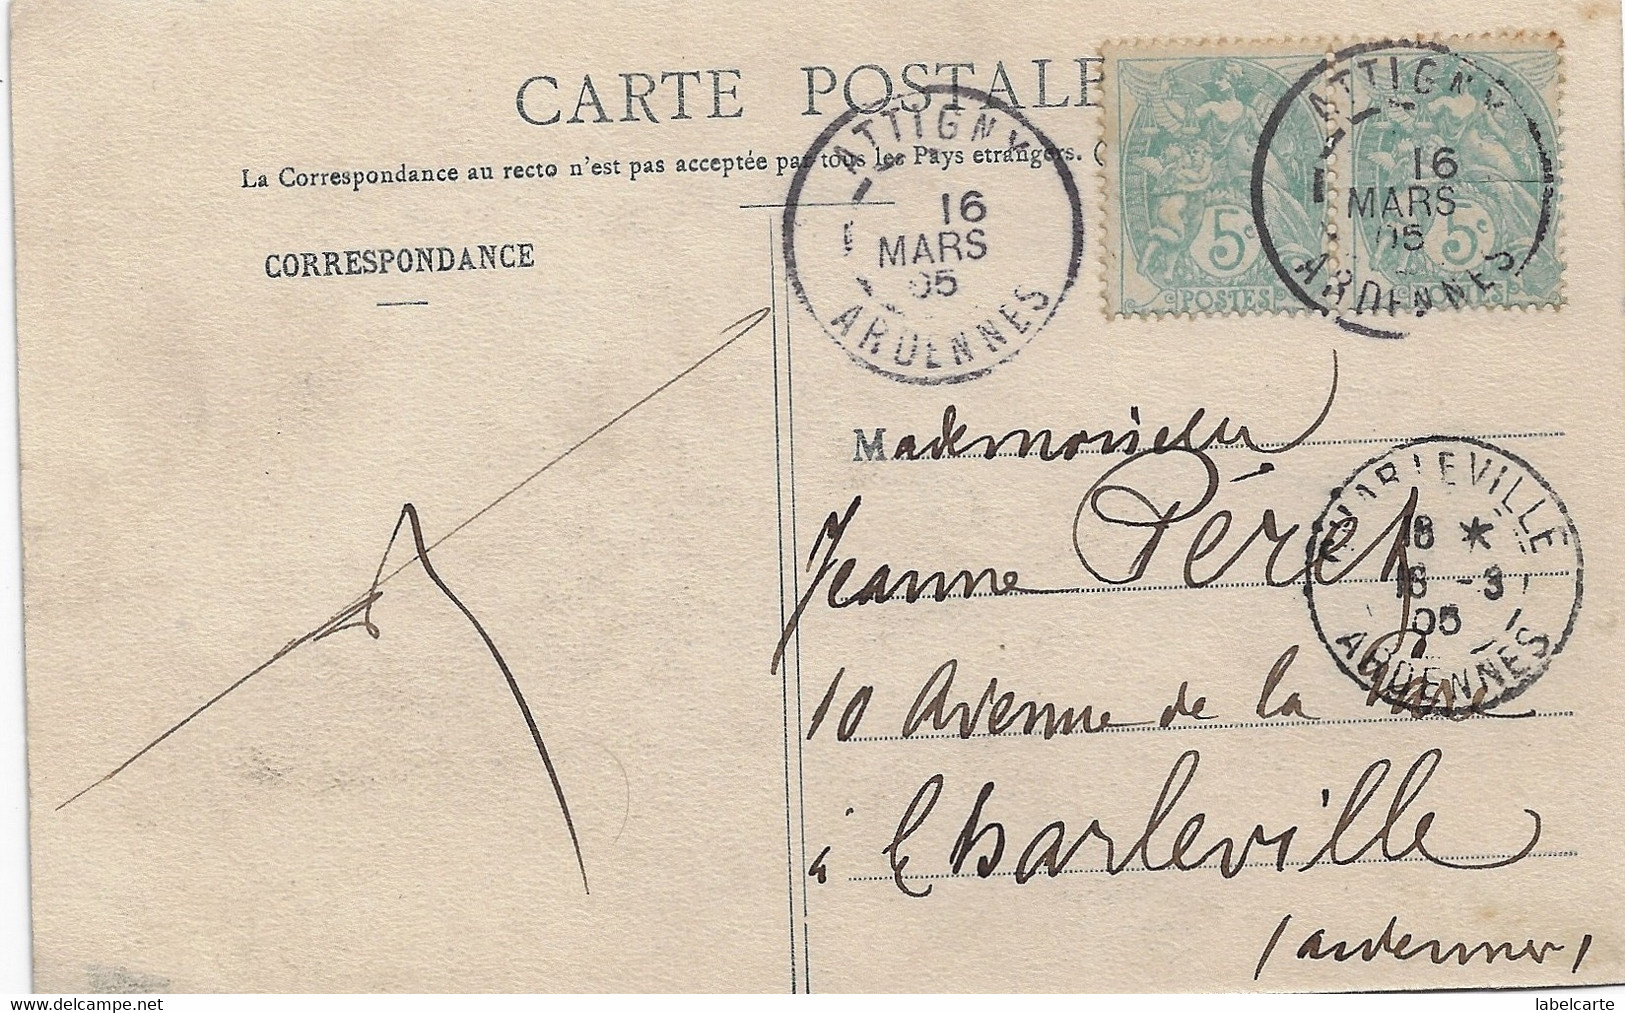 CARTE POSTALE
La Correspondance au recto n'est pas acceptée par tous les Pays etrangers. (
CORRESPONDANCE
ATTIGNY
16
MARS
05
ARDENNES
5c
POSTES
ATTIGNY
16
MARS
05
ARDENNES
5c
POSTES
Mademoiselle
Jeanne Péret
10 Avenue de la Gare
à Charleville
(ardennes)
CHARLEVILLE
18 *
16 -3
05
ARDENNES
www.delcampe.net
labelcarte